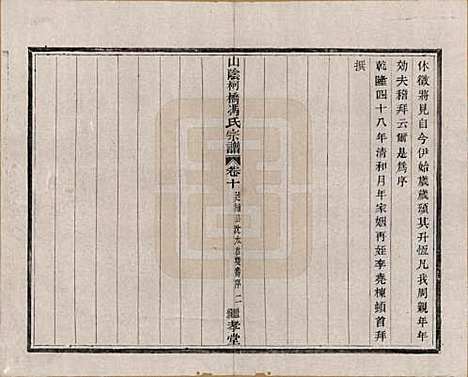 休徵將見自今伊始歲歲頌其升恆凡我周親年年
効夫稽拜云爾是為序
乾隆四十八年清和月年家姻再姪李堯棟頓首拜
撰
山陰柯橋馮氏宗譜
卷十
二
繼孝堂